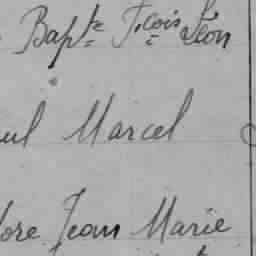 Bapte Fcois Léon
Marcel
Jean Marie